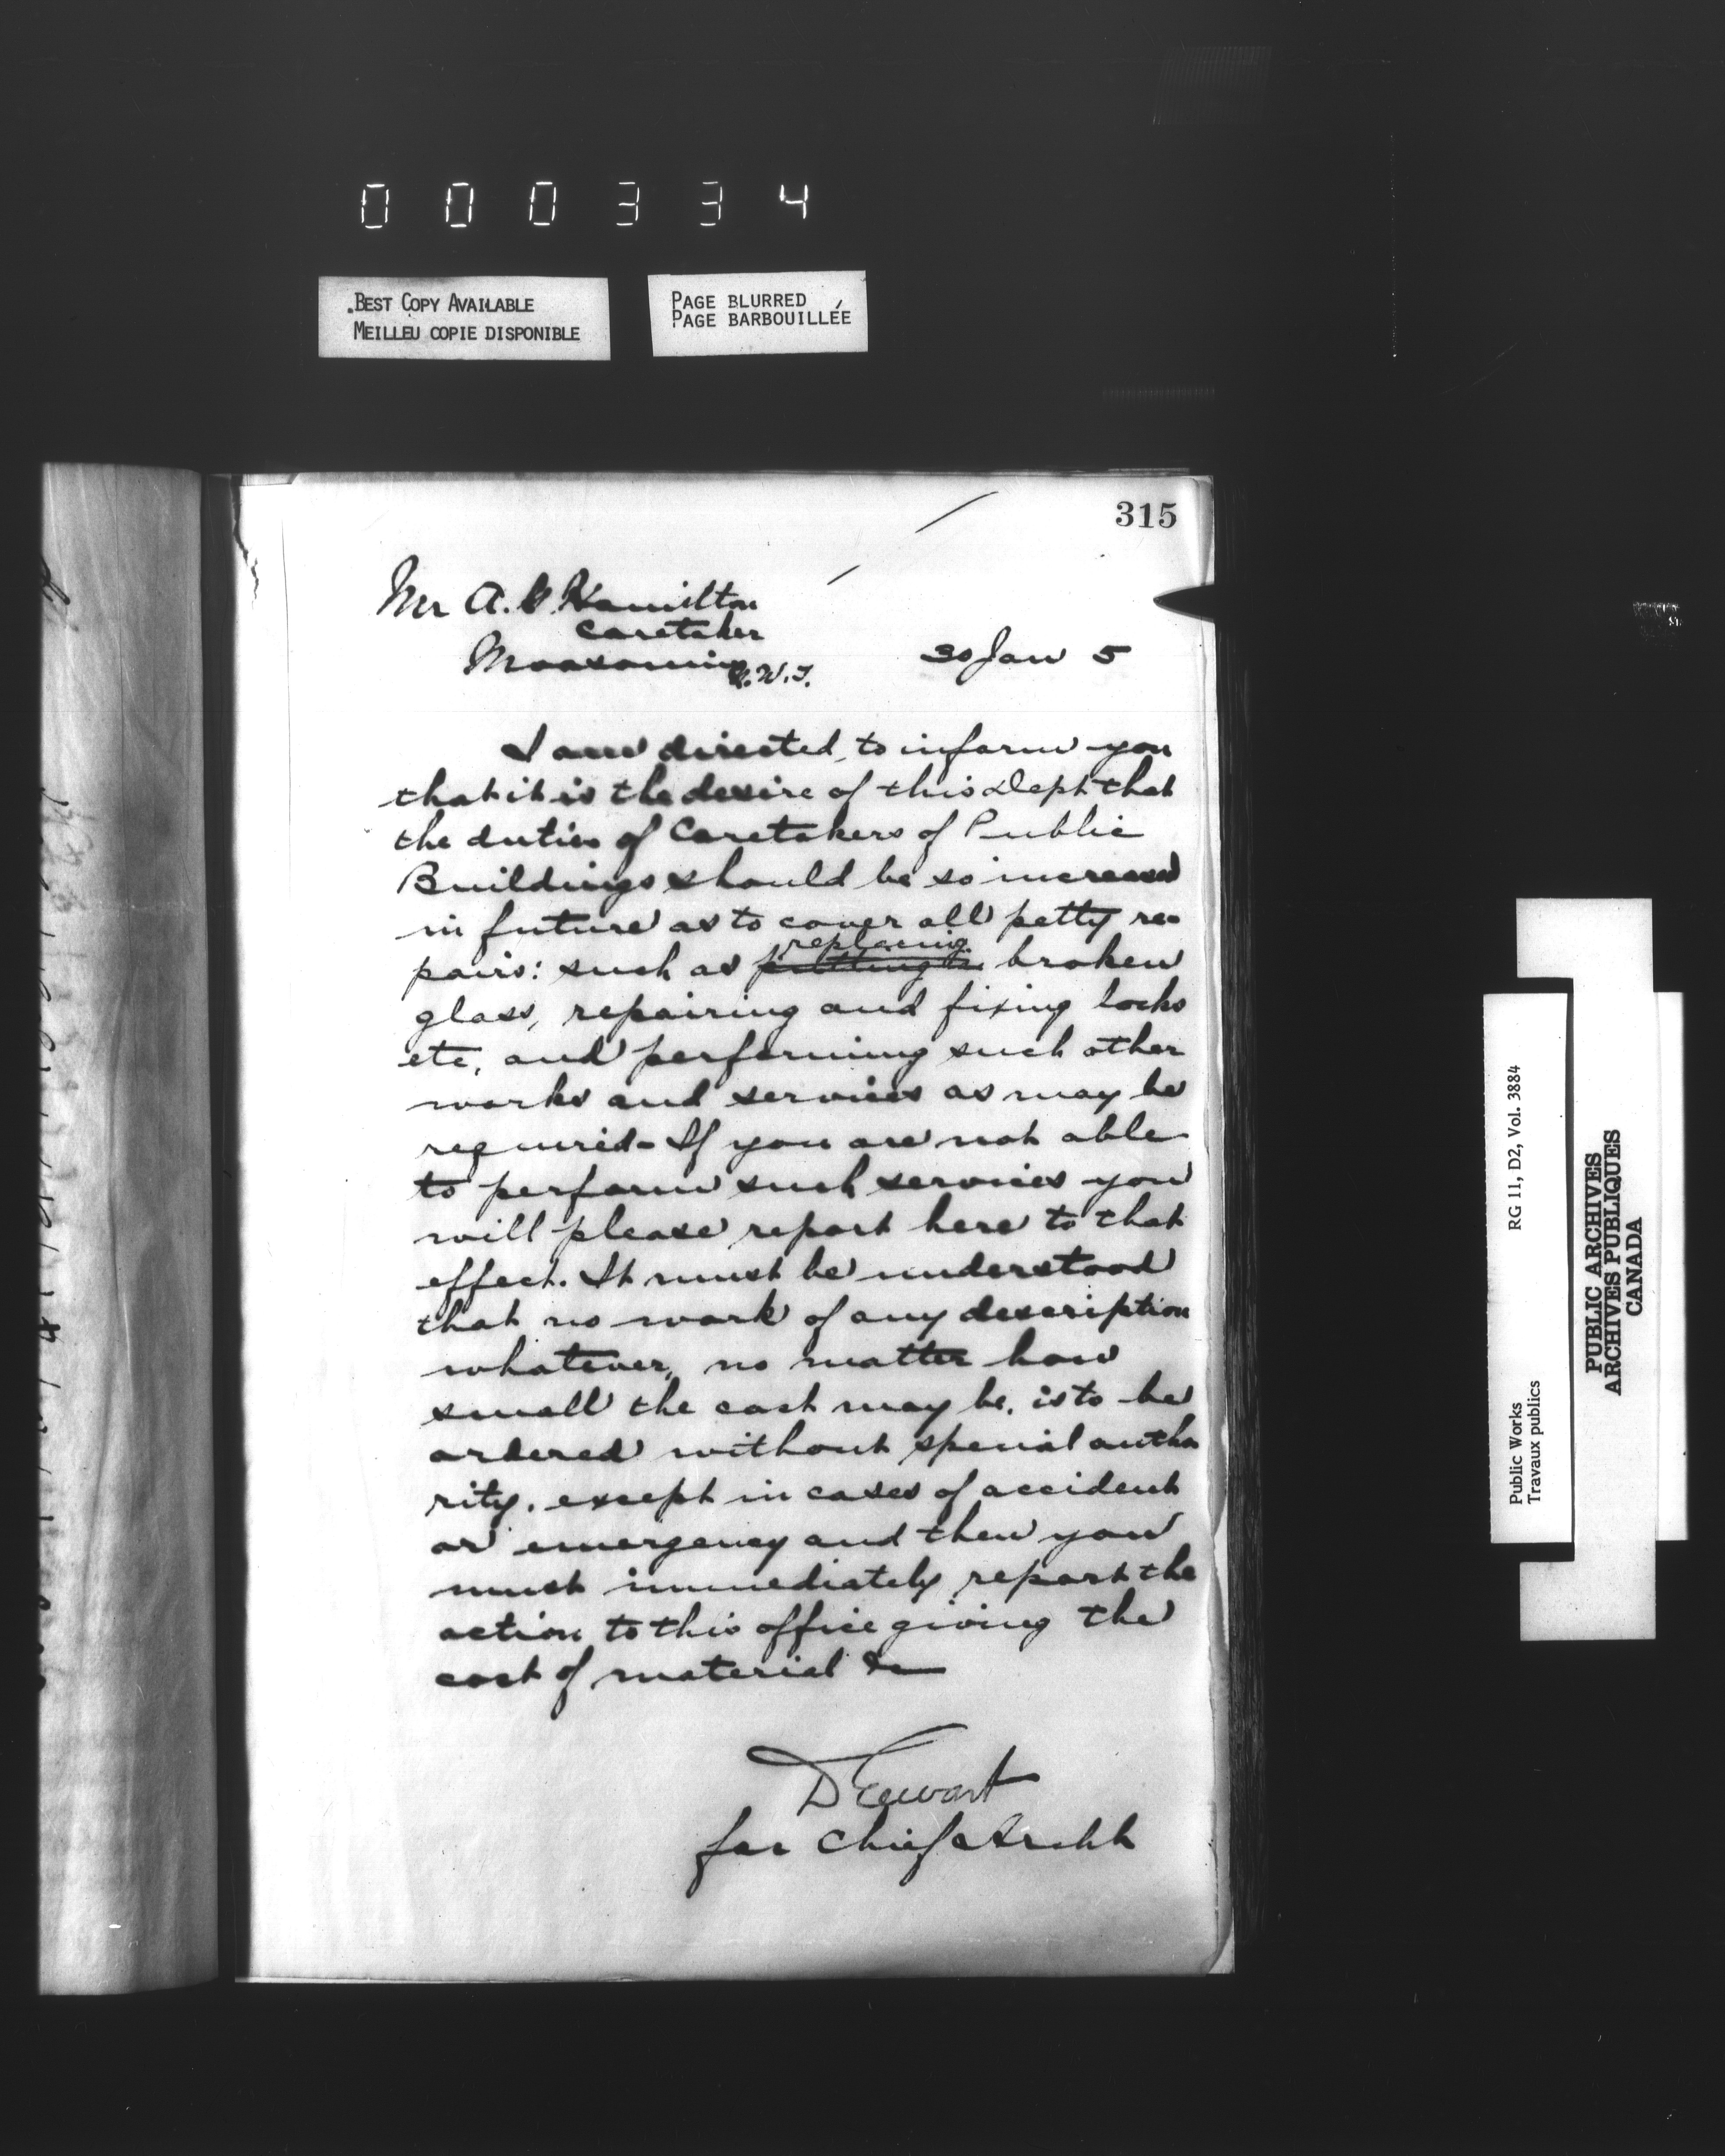 000334
BEST COPY AVAILABLE
MEILLEU COPIE DISPONIBLE
PAGE BLURRED
PAGE BARBOUILLÉE
315
Mr A. G. Hamilton
Caretaker
Moosomin N.W.T.
30 Jan 5
I am directed to inform you
that it is the desire of this Dept that
the duties of Caretakers of Public
Buildings should be so increased
in future as to cover all petty re-
pairs: such as putting in replacing broken
glass, repairing and fixing locks
etc, and performing such other
works and services as may be
required. If you are not able
to perform such services you
will please report here to that
effect. It must be understood
that no work of any description
whatever, no matter how
small the cost may be, is to be
ordered without special autho
rity, except in cases of accident
or emergency and then you
must immediately report the
action to this office giving the
cost of material &c
D Ewart
for Chief Archt
Public Works
Travaux publics
RG 11, D2, Vol. 3884
PUBLIC ARCHIVES
ARCHIVES PUBLIQUES
CANADA